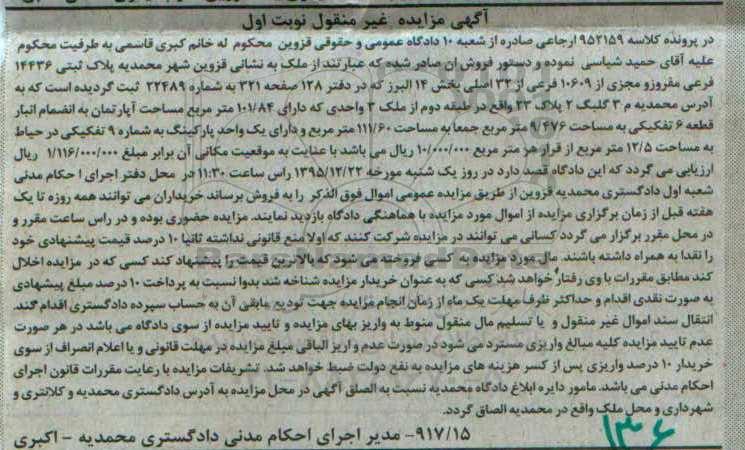 آگهی مزایده غیر منقول نوبت اول
در پرونده کلاسه ۹۵۲۱۵۹ ارجاعی صادره از شعبه ۱۰ دادگاه عمومی و حقوقی قزوین محکوم له خانم کبری قاسمی به طرفیت محکوم
علیه آقای حمید شیاسی نموده و دستور فروش آن صادر شده که عبارتند از ملک به نشانی قزوین شهر محمدیه پلاک ثبتی ۱۴۴۳۶
فرعی مفروز و مجزی از ۱۰۶۰۹ فرعی از ۳۲ اصلی بخش ۱۴ البرز که در دفتر ۱۲۸ صفحه ۳۲۱ به شماره ۲۲۴۸۹ ثبت گردیده است که به
آدرس محمدیه م ۳ گلبگ ۲ پلاک ۲۳ واقع در طبقه دوم از ملک ۳ واحدی که دارای ۱۰۱/۸۴ متر مربع مساحت آپارتمان به انضمام انبار
قطعه ۶ تفکیکی به مساحت ۹/۴۷۶ متر مربع جمعا به مساحت ۱۱۱/۶۰ متر مربع و دارای یک واحد پارکینگ به شماره ۹ تفکیکی در حیاط
به مساحت ۱۲/۵ متر مربع از قرار هر متر مربع ۱۰/۰۰۰/۰۰۰ ریال می باشد با عنایت به موقعیت مکانی آن برابر مبلغ ۱/۱۱۶/۰۰۰/۰۰۰ ریال
ارزیابی می گردد که این دادگاه قصد دارد در روز یک شنبه مورخه ۱۳۹۵/۱۲/۲۲ راس ساعت ۱۱:۳۰ در محل دفتر اجرای احکام مدنی
شعبه اول دادگستری محمدیه قزوین از طریق مزایده عمومی اموال فوق الذکر را به فروش برساند خریداران می توانند همه روزه تا یک
هفته قبل از زمان برگزاری مزایده از اموال مورد مزایده با هماهنگی دادگاه بازدید نمایند. مزایده حضوری بوده و در راس ساعت مقرر و
در محل مقرر برگزار می گردد کسانی می توانند در مزایده شرکت کنند که اولا منع قانونی نداشته ثانیا ۱۰ درصد قیمت پیشنهادی خود
را نقدا به همراه داشته باشند. مال مورد مزایده به کسی فروخته می شود که بالاترین قیمت را پیشنهاد کند کسی که در مزایده اخلال
کند مطابق مقررات با وی رفتار خواهد شد کسی که به عنوان خریدار مزایده شناخته شد بدوا نسبت به پرداخت ۱۰ درصد مبلغ پیشنهادی
به صورت نقدی اقدام و حداکثر ظرف مهلت یک ماه از زمان انجام مزایده جهت تودیع مابقی آن به حساب سپرده دادگستری اقدام کند.
انتقال سند اموال غیر منقول و یا تسلیم مال منقول منوط به واریز بهای مزایده و تایید مزایده از سوی دادگاه می باشد در هر صورت
عدم تایید مزایده کلیه مبالغ واریزی مسترد می شود در صورت عدم واریز الباقی مبلغ مزایده در مهلت قانونی و یا اعلام انصراف از سوی
خریدار ۱۰ درصد واریزی پس از کسر هزینه های مزایده به نفع دولت ضبط خواهد شد. تشریفات مزایده با رعایت مقررات قانون اجرای
احکام مدنی می باشد. مامور دایره ابلاغ دادگاه محمدیه نسبت به الصاق آگهی در محل مزایده به آدرس دادگستری محمدیه و کلانتری و
شهرداری و محل ملک واقع در محمدیه الصاق گردد.
۹۱۷/۱۵- مدیر اجرای احکام مدنی دادگستری محمدیه - اکبری
۱۳۶